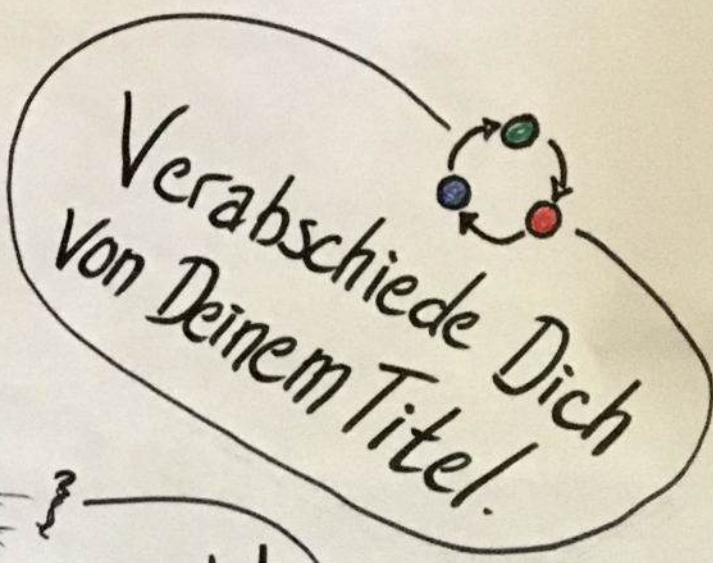 Verabschiede Dich
von Deinem Titel.